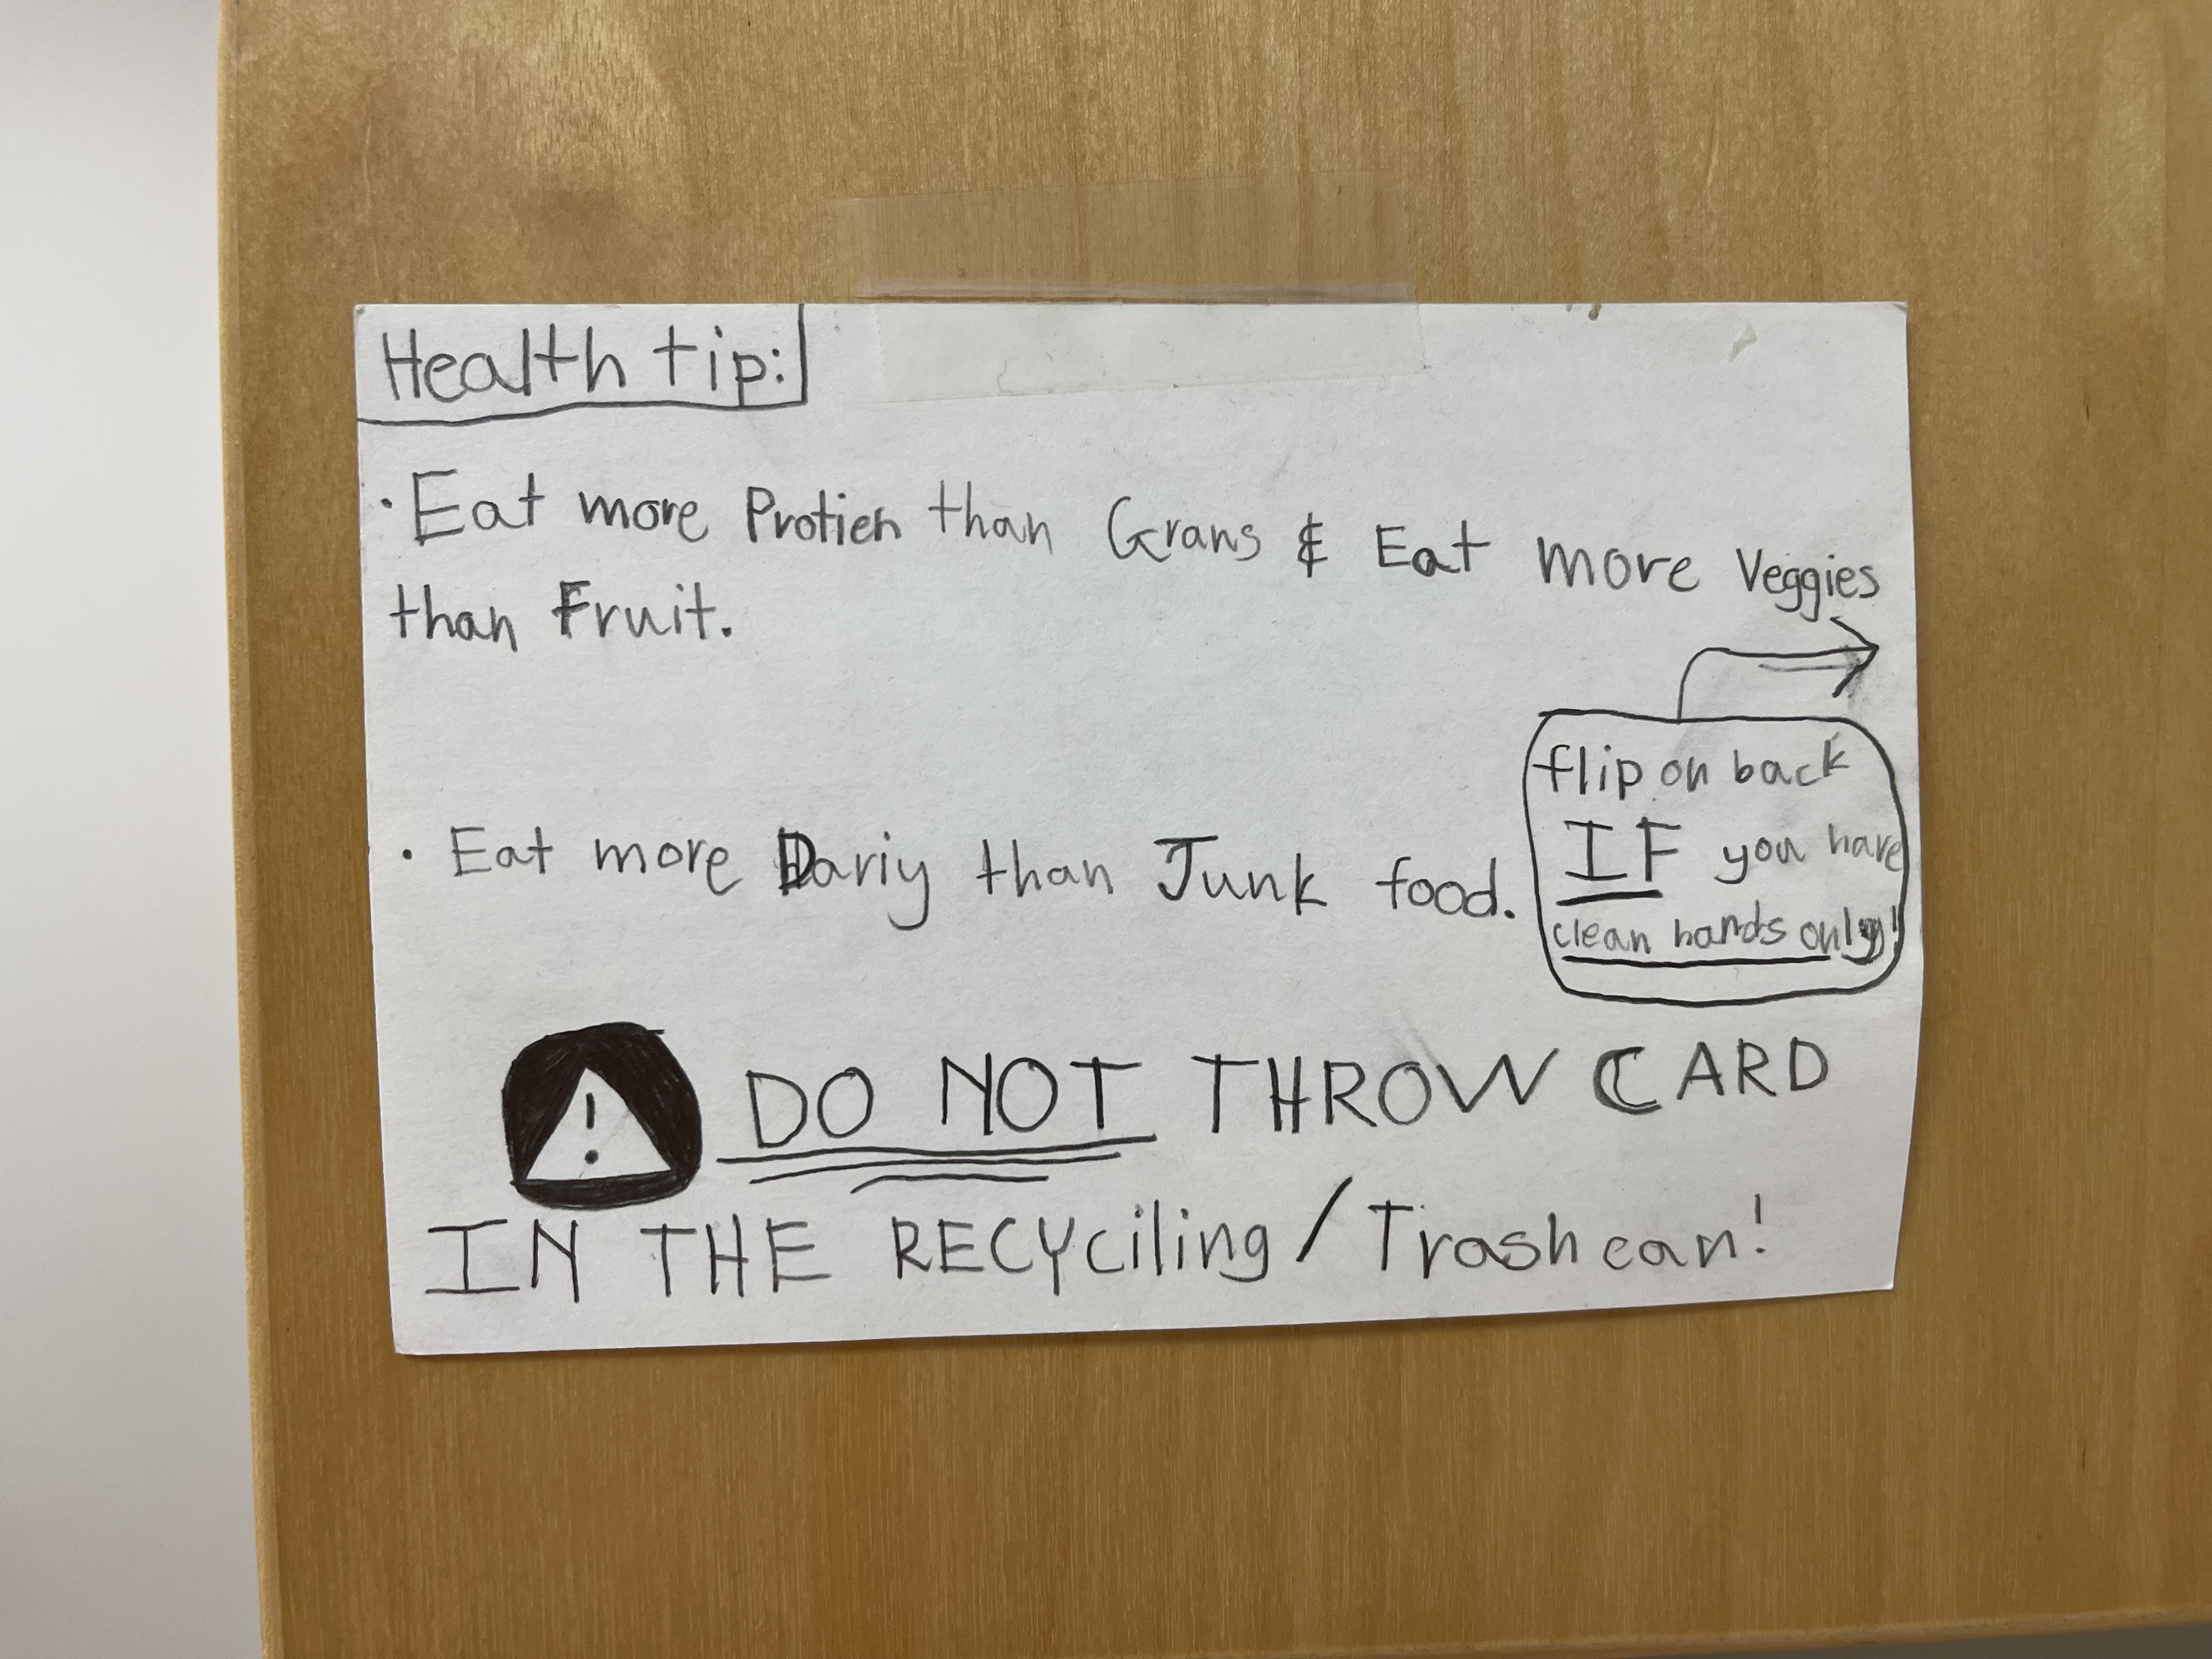 Health tip:
· Eat more Protien than Grans & Eat more Veggies
than Fruit.
· Eat more Dariy than Junk food.
flip on back
IF you have
clean hands only!
! DO NOT THROW CARD
IN THE RECYciling / Trash can!